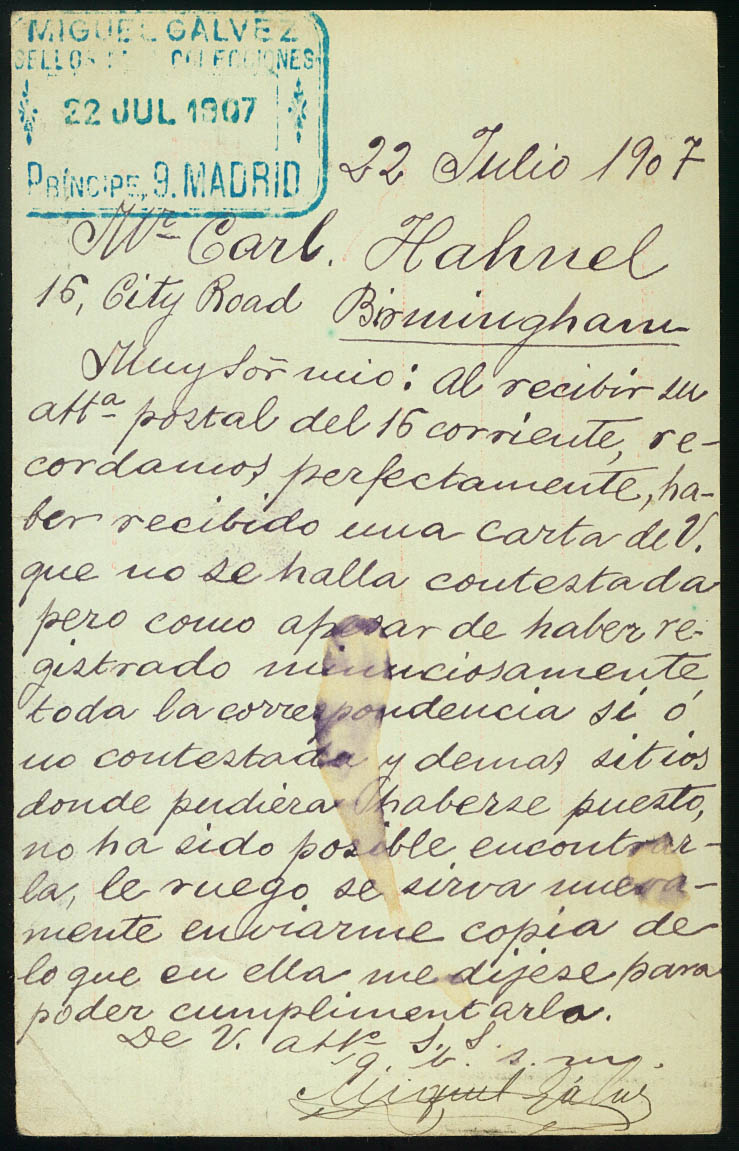 MIGUEL GALVEZ
SELLOS COLECCIONES
22 JUL 1907
PRÍNCIPE, 9. MADRID
22 Julio 1907
Mr. Carl. Hahnel
16, City Road Birmingham
Muy Sor̄ mio: Al recibir su
atta postal del 16 corriente, re-
cordamos perfectamente, ha-
ber recibido una carta de V.
que no se halla contestada
pero como apesar de haber re-
gistrado minuciosamente
toda la correspondencia si ó
no contestada y demas sitios
donde pudiera haberse puesto,
no ha sido posible encontrar-
la, le ruego se sirva nueva-
mente enviarme copia de
lo que en ella me dijese para
poder cumplimentarla.
De V. atto S. S.
q. b. s. m.
Miguel Gálvez